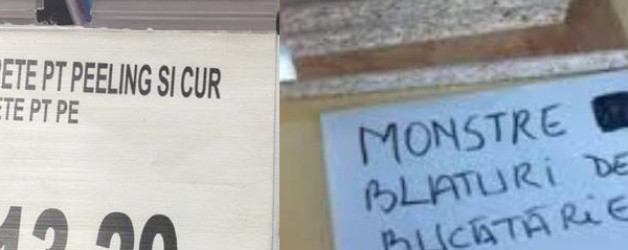 PETE PT PEELING SI CUR
ETE PT PE
13,29
MONSTRE
BLATURI DE
BUCĂTĂRiE